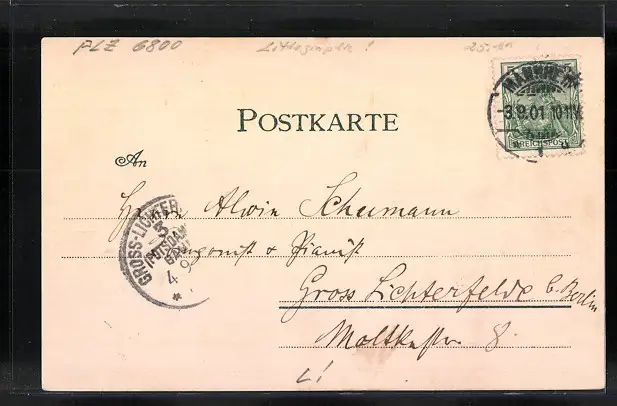 PLZ 6800 Lithographie! 25.-
MANNHEIM
-3.9.01 10-11V.
1
REICHSPOST
POSTKARTE
An
Herrn Alwin Schumann
GROSS-LICHTERF
3
(POTSDAM
BAHN
4 9
& Pianist
Gross Lichterfelde b. Berlin
Moltkestr. 8.
L!